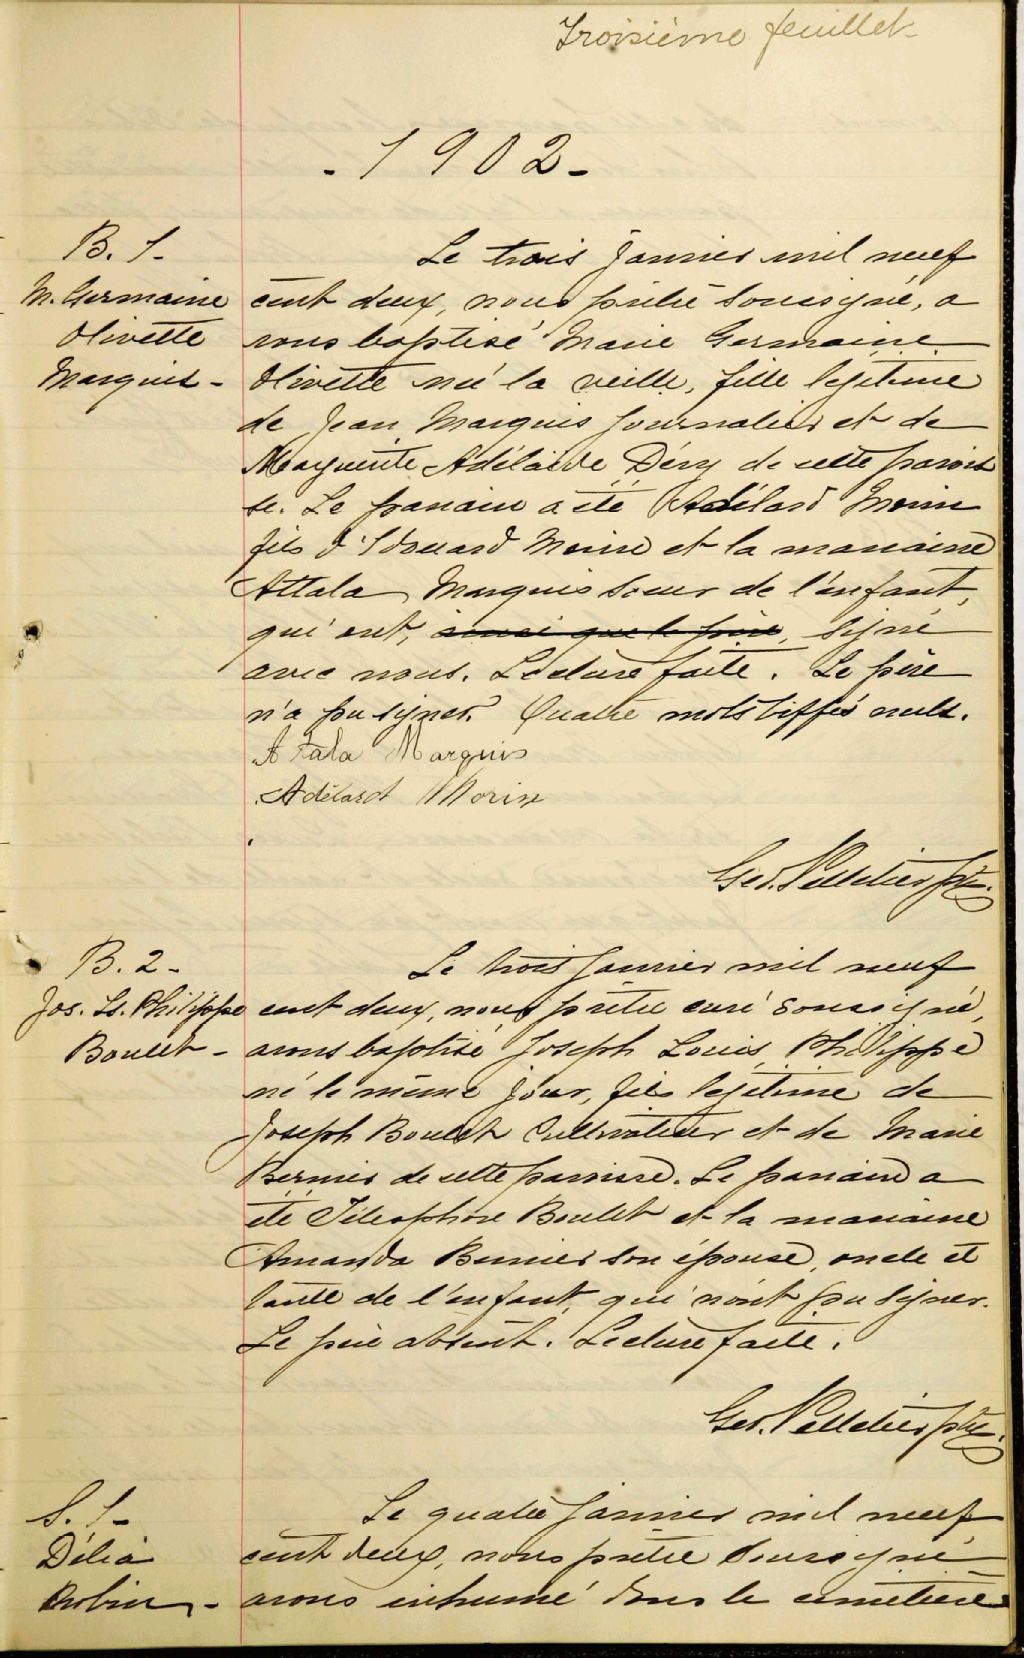 Troisième feuillet
- 1902 -
B. 1 -
M. Germaine
Olivette
Marquis -
Le trois janvier mil neuf
cent deux, nous prêtre soussigné, a
vons baptisé Marie Germaine
Olivette née la veille, fille légitime
de Jean Marquis journalier et de
Marguerite Adélaïde Déry de cette parois
se. Le parrain a été Adélard Morin
fils d'Edouard Morin et la marraine
Attala Marquis soeur de l'enfant,
qui ont, ainsi que le père, signé
avec nous. Lecture faite. Le père
n'a pu signer. Quatre mots biffés nuls.
Atala Marquis
Adélard Morin
Geo. Pelletier Ptre.
B. 2 -
Jos. Ls. Philippe
Boulet -
Le trois janvier mil neuf
cent deux, nous prêtre curé soussigné,
avons baptisé Joseph Louis Philippe
né le même jour, fils légitime de
Joseph Boulet Cultivateur et de Marie
Bernier de cette paroisse. Le parrain a
été Télesphore Boulet et la marraine
Amanda Bernier son épouse, oncle et
tante de l'enfant, qui n'ont pu signer.
Le père absent. Lecture faite.
Geo. Pelletier Ptre.
S. 1 -
Délia
-
Le quatre janvier mil neuf
cent deux, nous prêtre soussigné
avons inhumé dans le cimetière